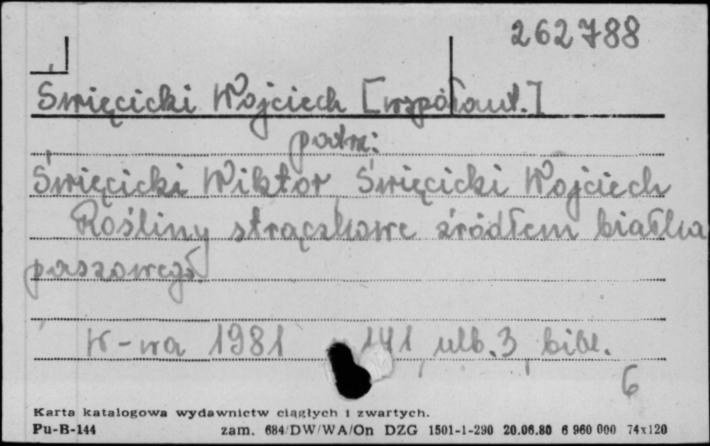 262788
Święcicki Wojciech [współaut.]
patrz:
Święcicki Wiktor, Święcicki Wojciech
Rośliny strączkowe źródłem białka
paszowego.
W-wa 1981 141, ulb. 3, bibl.
6
Karta katalogowa wydawnictw ciągłych i zwartych.
Pu-B-144 zam. 684/DW/WA/On DZG 1501-1-290 20.06.80 6 960 000 74x120